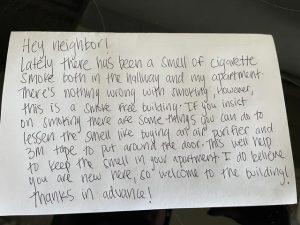 Hey neighbor!
Lately there has been a smell of cigarette
smoke both in the hallway and my apartment.
There's nothing wrong with smoking, however,
this is a smoke free building. If you insist
on smoking there are some things you can do to
lessen the smell like buying an air purifier and
3M tape to put around the door. This will help
to keep the smell in your apartment. I do believe
you are new here, so welcome to the building!
Thanks in advance!